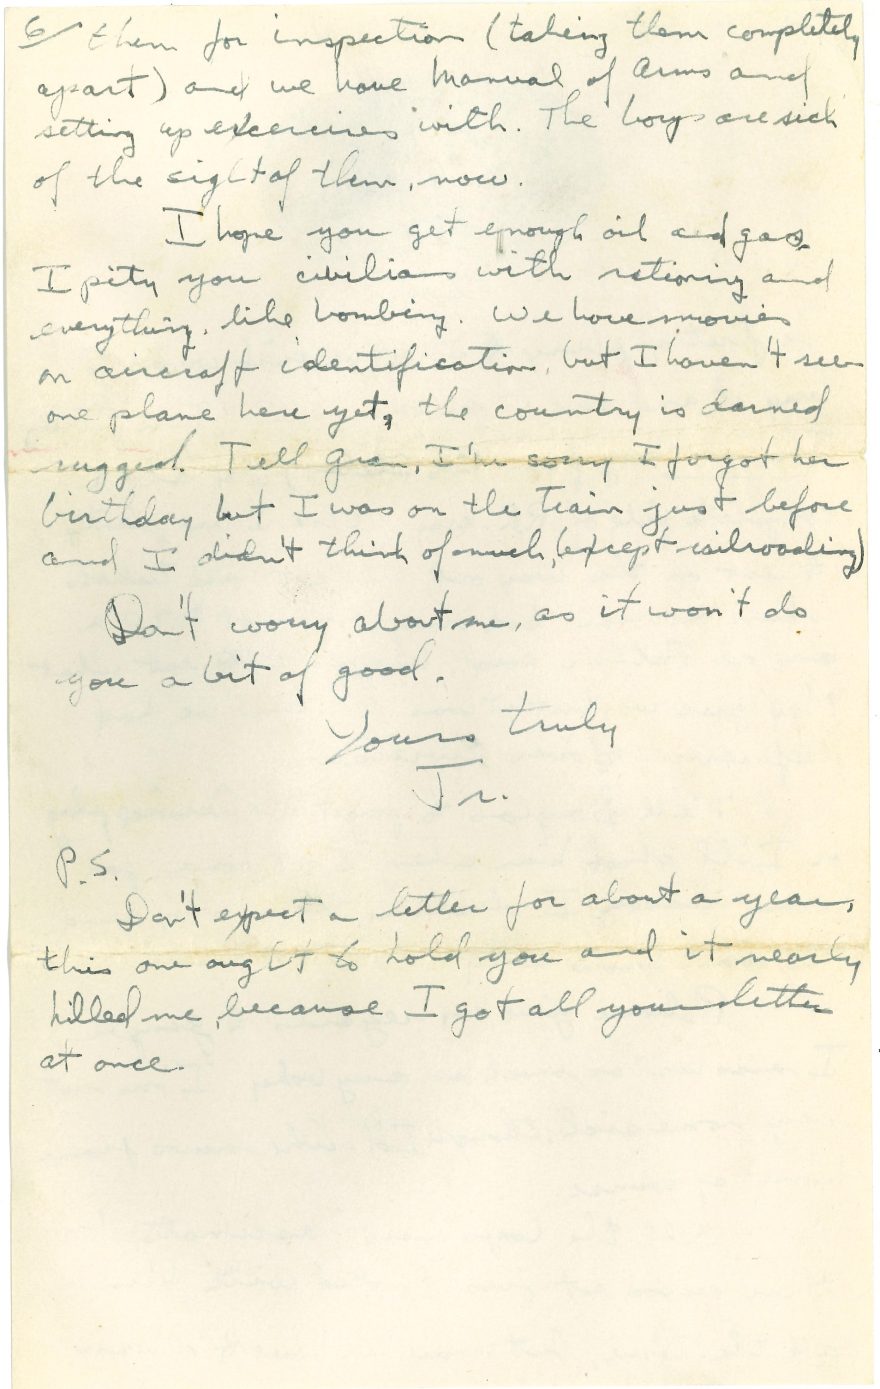 6/ them for inspection (taking them completely
apart) and we have Manual of Arms and
setting up excercises with. The boys are sick
of the sight of them, now.
I hope you get enough oil and gas.
I pity you civilians with rationing and
everything, like bombing. We have movies
on aircraft identification, but I haven't seen
one plane here yet, the country is darned
rugged. Tell Gran, I'm sorry I forgot her
birthday but I was on the Train just before
and I didn't think of much, (except railroading)
Don't worry about me, as it won't do
you a bit of good.
Yours truly
Jr.
P.S.
Don't expect a letter for about a year,
this one ought to hold you and it nearly
killed me, because I got all your letters
at once.